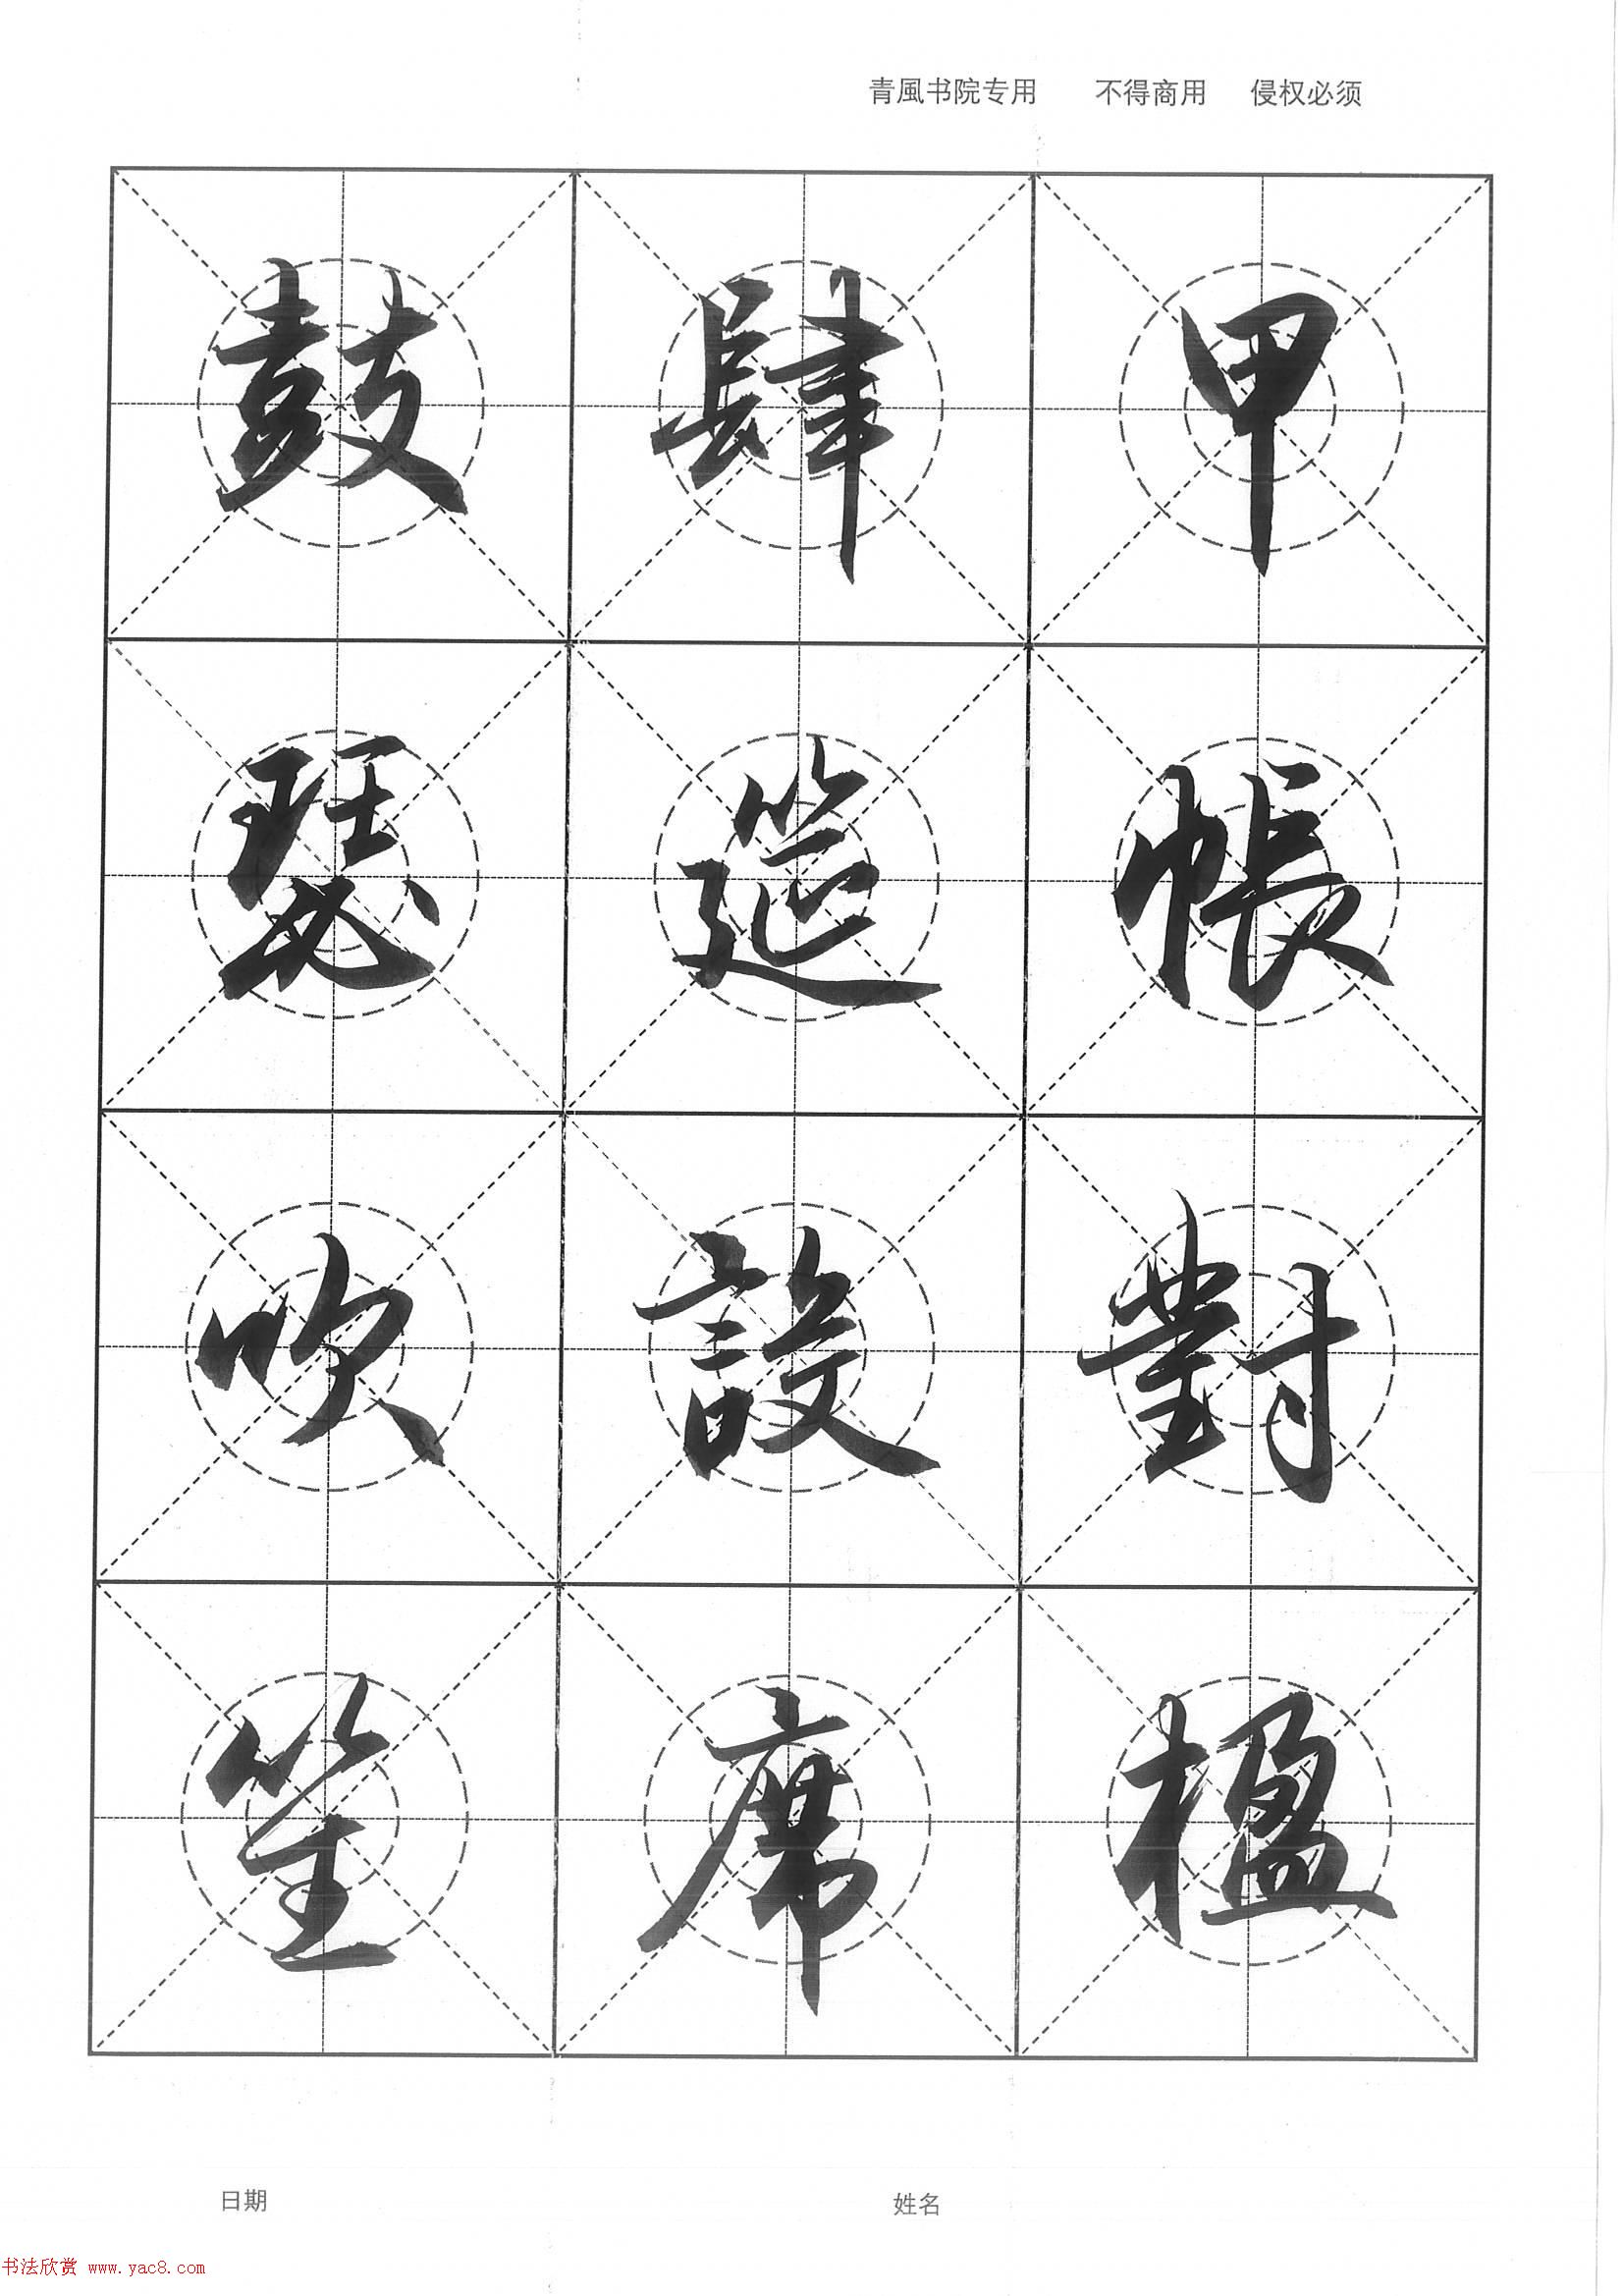 青風书院专用 不得商用 侵权必须
甲帳對楹
肆筵設席
鼓瑟吹笙
日期 姓名
书法欣赏 www.yac8.com